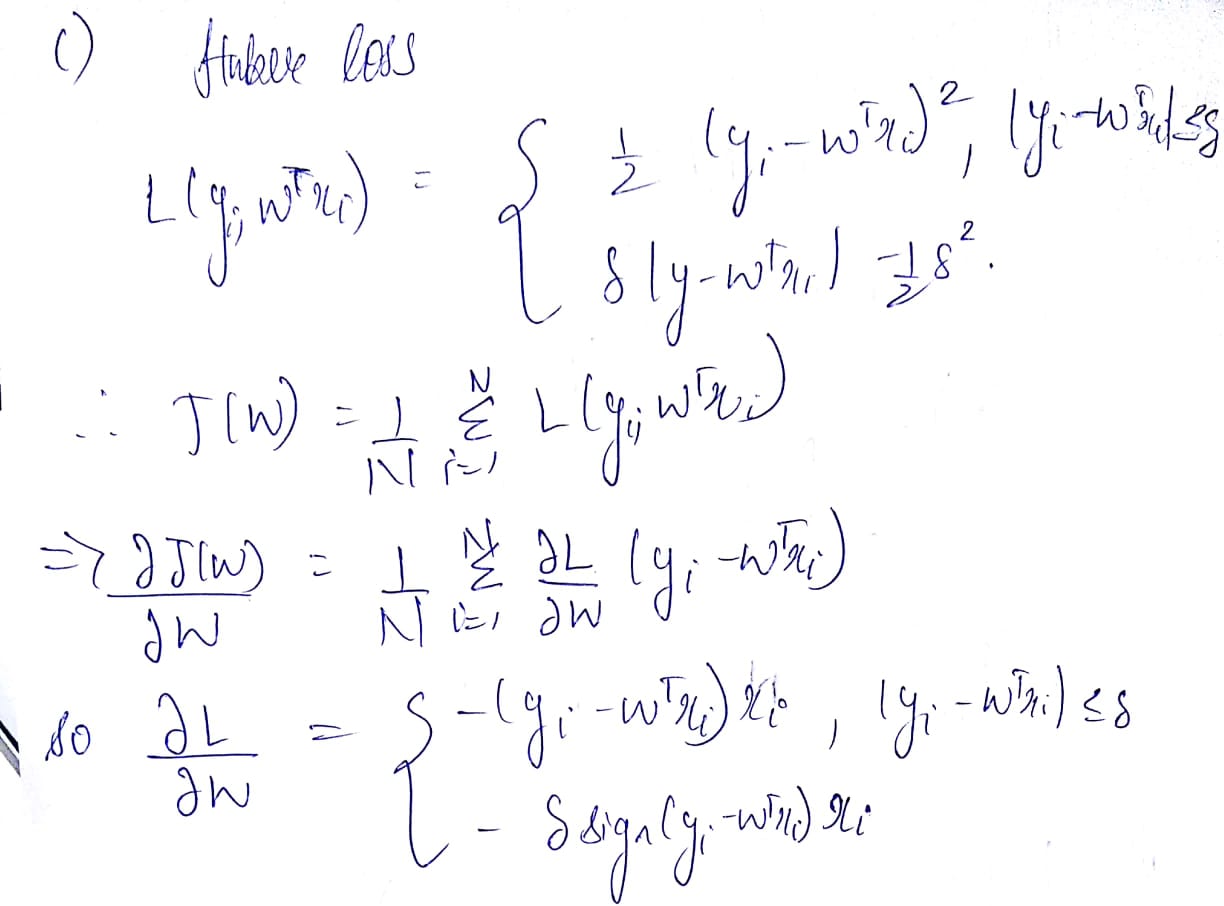 c) Huber loss
L(y_i, w^T x_i) = { 1/2 (y_i - w^T x_i)^2 , |y_i - w^T x_i| ≤ δ
δ |y - w^T x_i| - 1/2 δ^2 .
∴ J(w) = 1/N Σ_{i=1}^{N} L(y_i, w^T x_i)
=> ∂J(w)/∂w = 1/N Σ_{i=1}^{N} ∂L/∂w (y_i - w^T x_i)
so ∂L/∂w = { -(y_i - w^T x_i) x_i , |y_i - w^T x_i| ≤ δ
- δ sign(y_i - w^T x_i) x_i